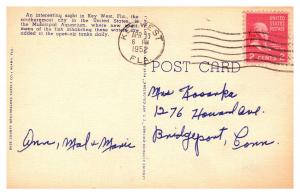 An interesting sight in Key West, Fla., the
southernmost city in the United States, is
the Municipal Aquarium, where new
of the fish inhabiting these waters are
added to the open-air tanks daily.
KEY WEST
APR 30
PM
1952
FLA.
UNITED STATES
POSTAGE
2 CENTS 2
POST CARD
Mrs
1276 Howard Ave.
Bridgeport, Conn.
Ann, Mal & Marie